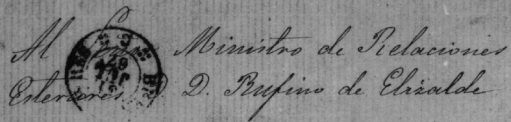 Al Señor Ministro de Relaciones
Esteriores D. Rufino de Elizalde